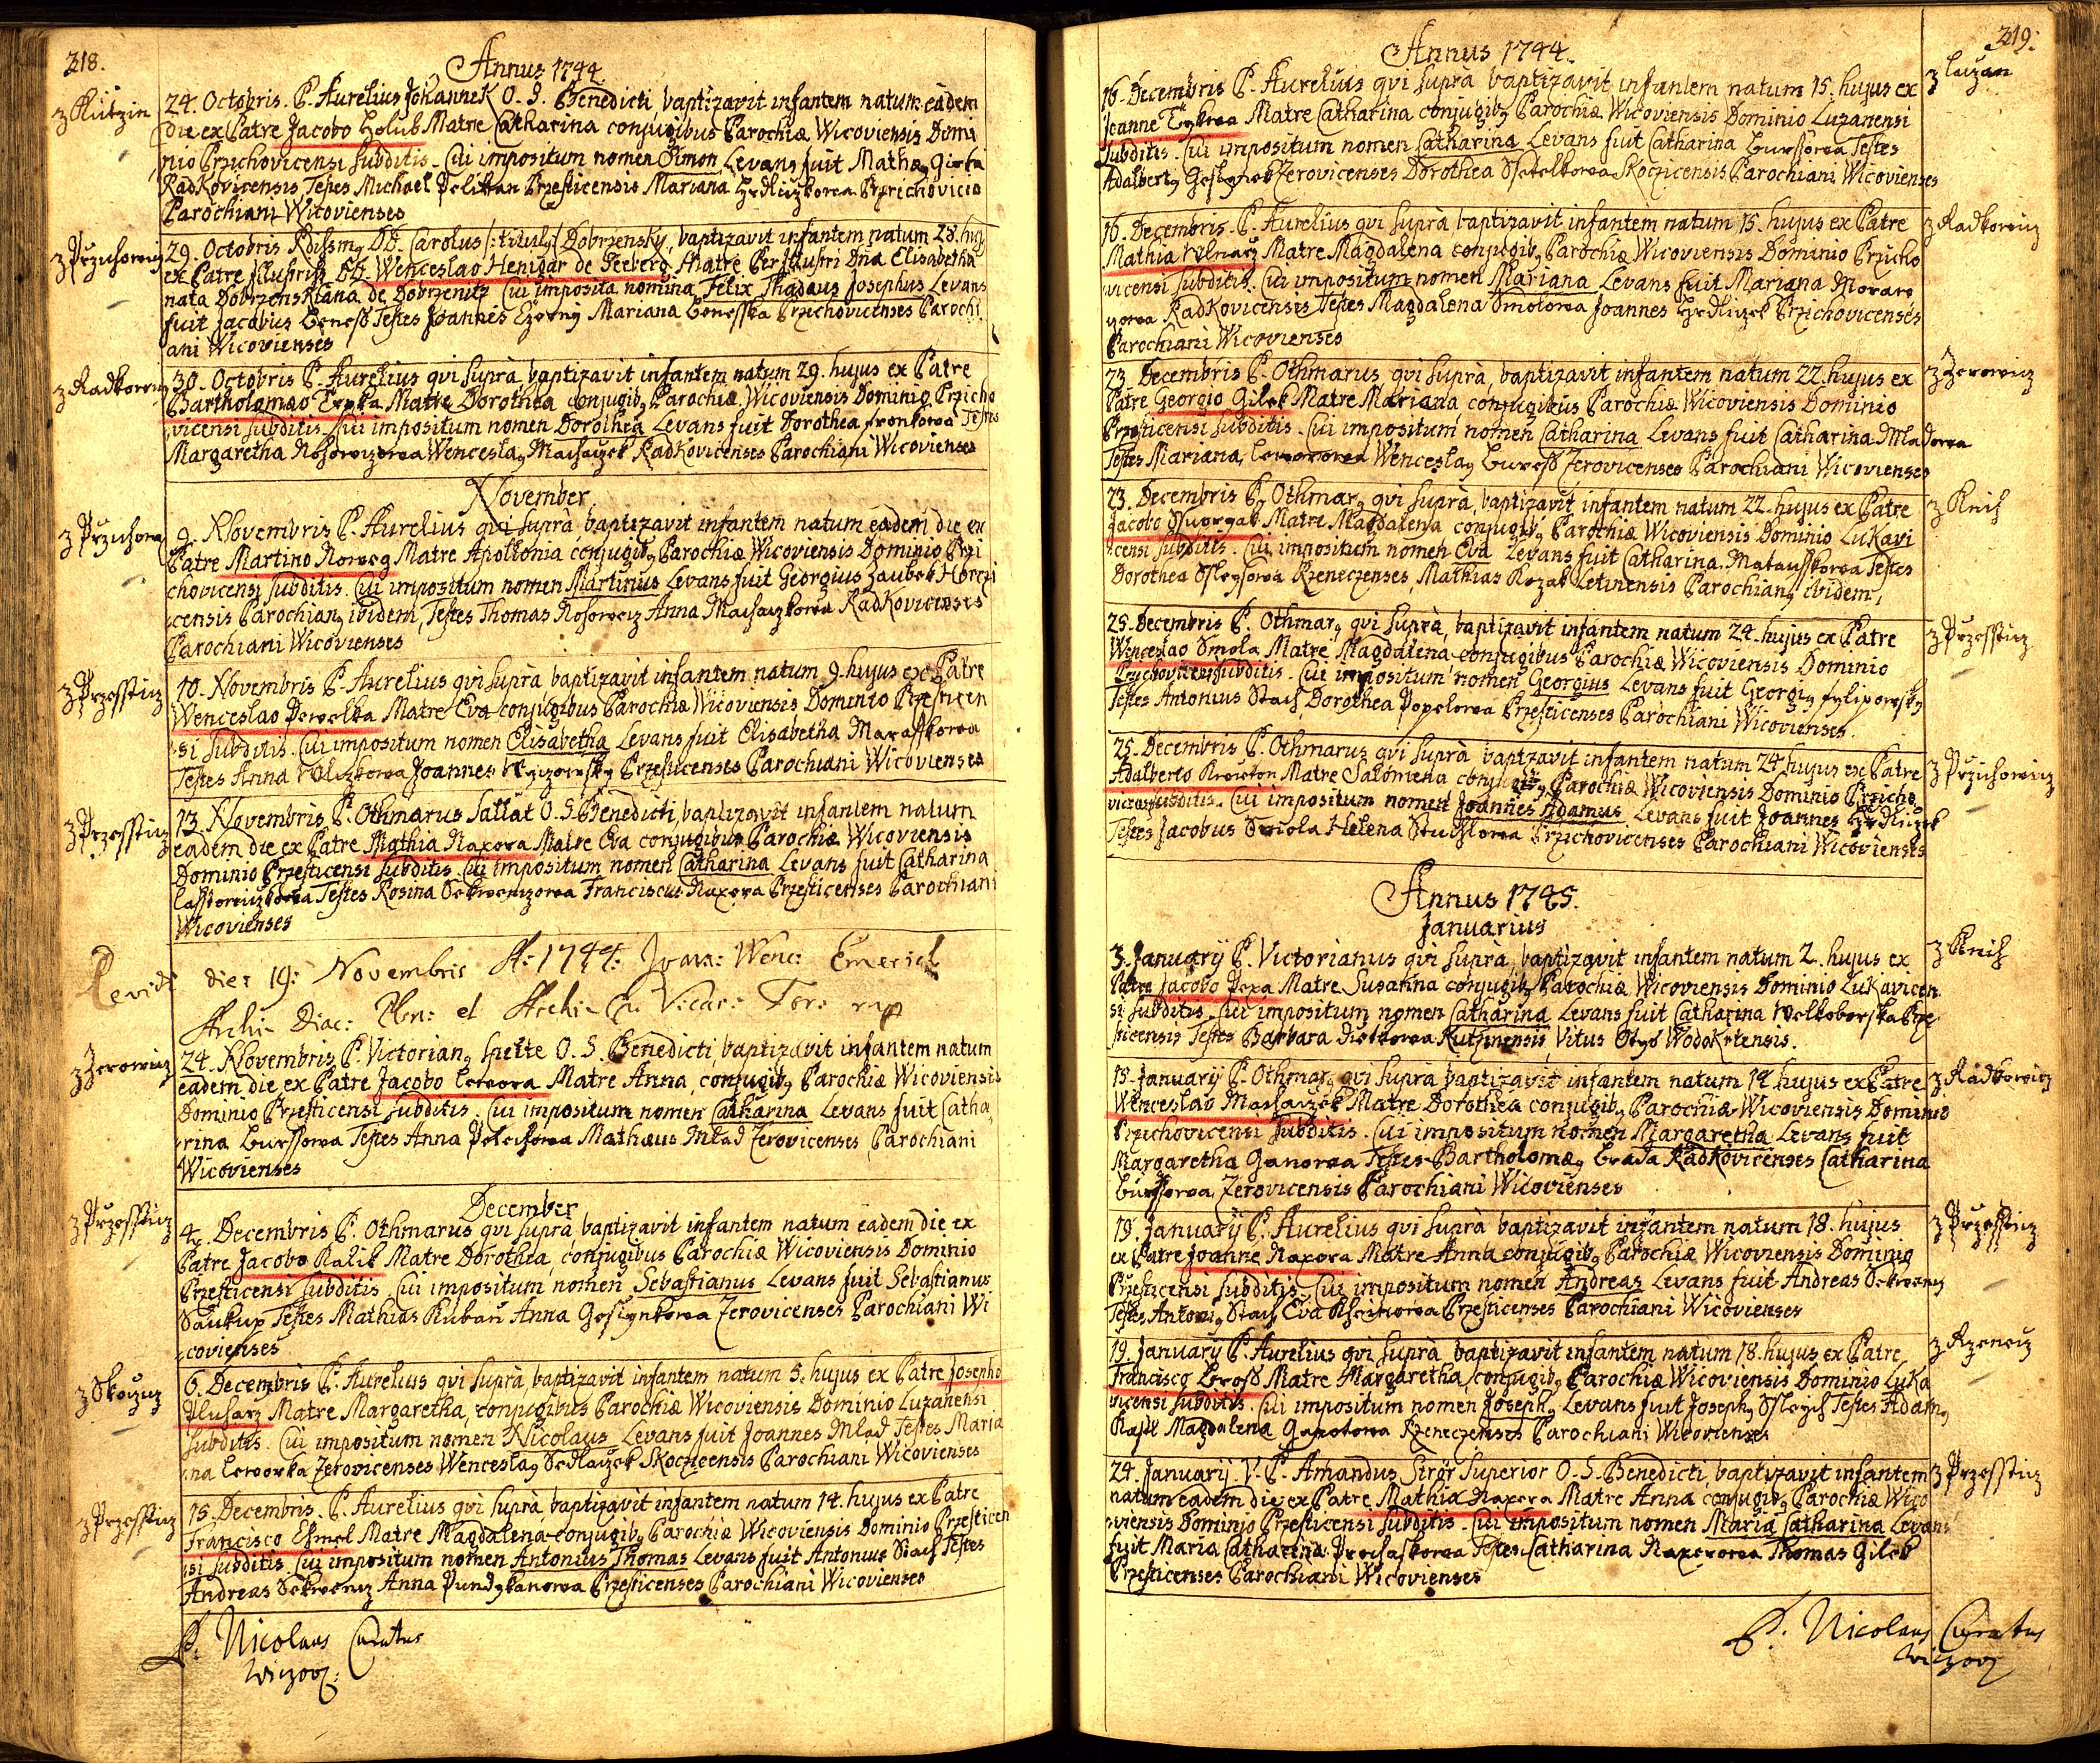 218.
Annus 1744.
z Kutzin
24. Octobris. P. Aurelius Johannek O. S. Benedicti, baptizavit infantem natum eadem
die ex Patre Jacobo Holub Matre Catharina conjugibus Parochiæ Wicoviensis Domi
nio Przichovicensi subditis. Cui impositum nomen Simon Levans fuit Mathæ9
Radkovicensis, Testes Michael Przesticensis Mariana Hrdliczkowa Przichovice
Parochiani Wicovienses
z Przichowicz
29. Octobris Rdissm9 DD. Carolus /:titul9:/ Dobrzensky, baptizavit infantem natum 28. huj9
ex Patre Wenceslao Henigar de Seeberg Matre Perillustri Dna Elisabetha
nata Dobrzenskiana de Dobrzenitz. Cui imposita nomina Felix Thadæus Josephus Levans
fuit Jacobus Beness Testes Joannes Czerny Mariana Benesska Przichovicenses Parochi
ani Wicovienses
z Radkowicz
30. Octobris P. Aurelius qvi supra baptizavit infantem natum 29. hujus ex Patre
Bartholomæo Matre Dorothea conjugib9 Parochiæ Wicoviensis Dominio Przicho
vicensi subditis. Cui impositum nomen Dorothea Levans fuit Dorothea Fronkowa Testes
Margaretha Wencesla9 Machaczek Radkovicenses Parochiani Wicovienses
November
z Przichow
9. Novembris P. Aurelius qui supra, baptizavit infantem natum eadem die ex
Patre Martino Matre Apollonia conjugib9 Parochiæ Wicoviensis Dominio Przi
chovicensi subditis. Cui impositum nomen Martinus Levans fuit Georgius Zaubek
censis Parochian9 ibidem, Testes Thomas Anna Machaczkowa Radkovicenses
Parochiani Wicovienses
z Przessticz
10. Novembris P. Aurelius qvi supra baptizavit infantem natum 9. hujus ex Patre
Wenceslao Pewelka Matre Eva conjugibus Parochiæ Wicoviensis Dominio Przesticen
si subditis. Cui impositum nomen Elisabetha Levans fuit Elisabetha Marasskowa
Testes Anna Joannes Przesticenses Parochiani Wicovienses
z Przessticz
13. Novembris P. Othmarus Sallat O. S. Benedicti, baptizavit infantem natum
eadem die ex Patre Mathia Naxera Matre Eva conjugibus Parochiæ Wicoviensis
Dominio Przesticensi subditis. Cui impositum nomen Catharina Levans fuit Catharina
Testes Rosina Franciscus Naxera Przesticenses Parochiani
Wicovienses
Revidi die: 19: Novembris A: 1744: Joan: Wenc: Emerich
Archi Diac: Plsn: et
z Zerowicz
24. Novembris P. Victorian9 O. S. Benedicti, baptizavit infantem natum
eadem die ex Patre Jacobo Matre Anna, conjugib9 Parochiæ Wicoviensis
Dominio Przesticensi subditis. Cui impositum nomen Catharina Levans fuit Catha
rina Burssowa Testes Anna Mathæus Mlad Zerovicenses, Parochiani
Wicovienses
December
z Przessticz
4. Decembris P. Othmarus qvi supra, baptizavit infantem natum eadem die ex
Patre Jacobo Kalik Matre Dorothea, conjugibus Parochiæ Wicoviensis Dominio
Przesticensi subditis. Cui impositum nomen Sebastianus Levans fuit Sebastianus
Saukup Testes Mathias Anna Zerovicenses Parochiani Wi
covienses
z Skoczicz
6. Decembris P. Aurelius qvi supra, baptizavit infantem natum 5. hujus ex Patre Josepho
Pluharz Matre Margaretha, conjugibus Parochiæ Wicoviensis Dominio Luzanensi
subditis. Cui impositum nomen Nicolaus Levans fuit Joannes Mlad Testes Maria
na Zerovicenses Wencesla9 Sedlaczek Skoczicensis Parochiani Wicovienses
z Przessticz
15. Decembris. P. Aurelius qvi supra baptizavit infantem natum 14. hujus ex Patre
Francisco Matre Magdalena conjugib9 Parochiæ Wicoviensis Dominio Przesticen
si subditis. Cui impositum nomen Antonius Thomas Levans fuit Antonius Stach Testes
Andreas Anna Przesticenses Parochiani Wicovienses
P. Nicolaus Curatus
219.
Annus 1744.
z Luzan
16. Decembris P. Aurelius qvi supra baptizavit infantem natum 15. hujus ex
Joanne Matre Catharina conjugib9 Parochiæ Wicoviensis Dominio Luzanensi
subditis. Cui impositum nomen Catharina Levans fuit Catharina Burssowa Testes
Adalbert9 Zerovicenses Dorothea Skoczicensis Parochiani Wicovienses
z Radkowicz
16. Decembris. P. Aurelius qvi supra, baptizavit infantem natum 15. hujus ex Patre
Mathia Matre Magdalena conjugib9 Parochiæ Wicoviensis Dominio Przicho
vicensi subditis. Cui impositum nomen Mariana Levans fuit Mariana
Radkovicensis Testes Magdalena Smolowa Joannes Hrdliczek Przichovicenses
Parochiani Wicovienses
z Zerowicz
23. Decembris P. Othmarus qvi supra, baptizavit infantem natum 22. hujus ex
Patre Georgio Gilek Matre Mariana conjugibus Parochiæ Wicoviensis Dominio
Przesticensi subditis. Cui impositum nomen Catharina Levans fuit Catharina Mladowa
Testes Mariana Wencesla9 Buress Zerovicenses Parochiani Wicovienses
z Knich
23. Decembris P. Othmar9 qvi supra, baptizavit infantem natum 22. hujus ex Patre
Jacobo Matre Magdalena conjugib9 Parochiæ Wicoviensis Dominio Lukavi
censi subditis. Cui impositum nomen Eva Levans fuit Catharina Matausskowa Testes
Dorothea Rzeneczenses, Mathias Kozak Letinensis Parochian9 ibidem,
z Przessticz
25. Decembris P. Othmar9 qvi supra, baptizavit infantem natum 24. hujus ex Patre
Wenceslao Smola Matre Magdalena conjugibus Parochiæ Wicoviensis Dominio
Przichovicensi subditis. Cui impositum nomen Georgius Levans fuit Georgi9
Testes Antonius Stach, Dorothea Popelowa Przesticenses Parochiani Wicovienses.
z Przichowicz
25. Decembris P. Othmarus qvi supra baptzavit infantem natum 24 hujus ex Patre
Adalberto Matre Salomena conjugib9 Parochiæ Wicoviensis Dominio Przicho
vicensi subditis. Cui impositum nomen Joannes Adamus Levans fuit Joannes Hrdliczek
Testes Jacobus Smola Helena Przichovicenses Parochiani Wicovienses
Annus 1745.
Januarius
z Knich
3. Januarij P. Victorianus qvi supra, baptizavit infantem natum 2. hujus ex
Patre Jacobo Pexa Matre Susanna conjugib9 Parochiæ Wicoviensis Dominio Lukavicen
si subditis. Cui impositum nomen Catharina Levans fuit Catharina Welkoborska Prze
sticensis Testes Barbara Kutzinensis, Vitus Wodokrtensis.
z Radkowicz
15. Januarij P. Othmar9 qvi supra baptizavit infantem natum 14. hujus ex Patre
Wenceslao Machaczek Matre Dorothea conjugib9 Parochiæ Wicoviensis Dominio
Przichovicensi subditis. Cui impositum nomen Margaretha Levans fuit
Margaretha Ganowa Testes Bartholomæ9 Brada Radkovicenses Catharina
Burssowa Zerovicensis Parochiani Wicovienses
z Przessticz
19. Januarij P. Aurelius qvi supra baptizavit infantem natum 18. hujus
ex Patre Joanne Naxera Matre Anna conjugib9 Parochiæ Wicoviensis Dominio
Przesticensi subditis. Cui impositum nomen Andreas Levans fuit Andreas
Testes Antoni9 Stach Eva Przesticenses Parochiani Wicovienses
z Rzenecz
19. Januarij P. Aurelius qvi supra baptizavit infantem natum 18. hujus ex Patre
Francisco Matre Margaretha, conjugib9 Parochiæ Wicoviensis Dominio Luka
vicensi subditis. Cui impositum nomen Joseph9 Levans fuit Joseph9 Testes Adam9
Magdalena Rzeneczenses Parochiani Wicovienses
z Przessticz
24. Januarij. V. P. Amandus Superior O. S. Benedicti, baptizavit infantem
natum eadem die ex Patre Mathia Naxera Matre Anna conjugib9 Parochiæ Wico
viensis Dominio Przesticensi subditis. Cui impositum nomen Maria Catharina Levans
fuit Maria Catharina Prochaskowa Testes Catharina Naxerowa Thomas Gilek
Przesticenses Parochiani Wicovienses
P. Nicolaus Curatus